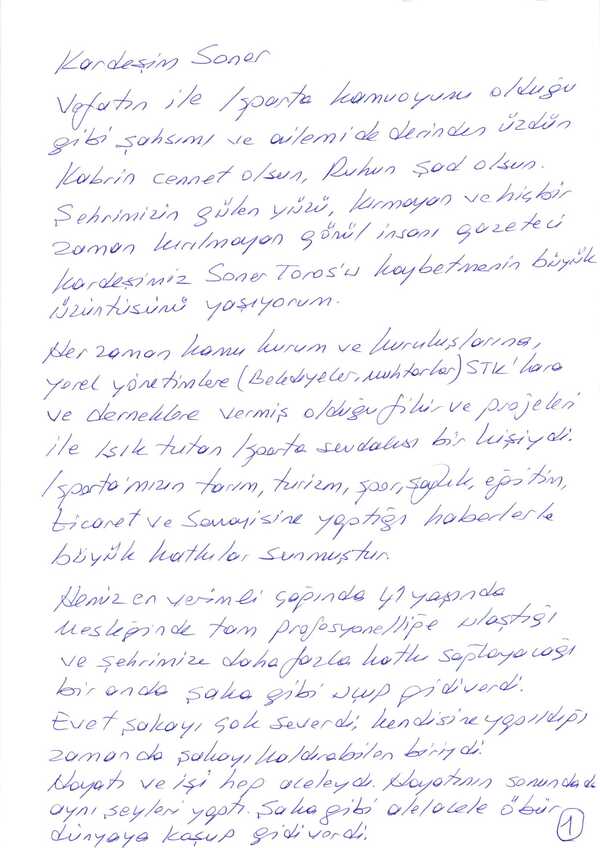 Kardeşim Soner
Vefatın ile Isparta kamuoyunu olduğu
gibi şahsımı ve ailemi de derinden üzdün
Kabrin cennet olsun, Ruhun Şad olsun.
Şehrimizin gülen yüzü, kırmayan ve hiçbir
zaman kırılmayan gönül insanı gazeteci
kardeşimiz Soner Toros'u kaybetmenin büyük
üzüntüsünü yaşıyorum.
Her zaman kamu kurum ve kuruluşlarına,
yerel yönetimlere (Belediyeler, muhtarlar) STK'lara
ve derneklere vermiş olduğu fikir ve projeleri
ile Işık tutan Isparta sevdalısı bir kişiydi.
Isparta'mızın tarım, turizm, spor, sağlık, eğitim,
ticaret ve Sanayisine yaptığı haberlerle
büyük katkılar sunmuştur.
Henüz en verimli çağında 41 yaşında
Mesleğinde tam profosyonelliğe ulaştığı
ve şehrimize daha fazla katkı sağlayacağı
bir anda şaka gibi uçup gidiverdi.
Evet şakayı çok severdi, kendisine yapıldığı
zaman da şakayı kaldırabilen biriydi.
Hayatı ve işi hep aceleydi. Hayatının sonunda da
aynı şeyleri yaptı. Şaka gibi alelacele öbür
dünyaya koşup gidiverdi.
1